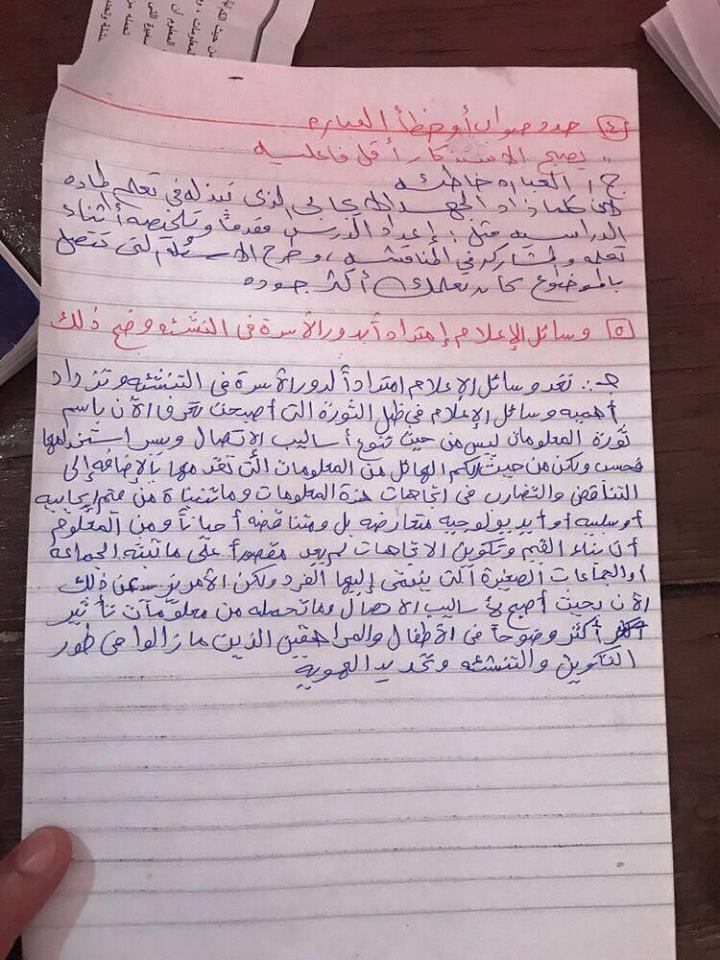 من حيث الكم
المعلومات
المعلوم أن
صغيرة التى
تحمله من
٤ حدد صواب أو خطأ العبارة
" يصبح الاستذكار أقل فاعلية
ج / العبارة خاطئة
كلما زاد الجهد الذى تبذله فى تعلم مادة
الدراسيه مثل : إعداد الدرس مقدماً وتلخيصه أثناء
تعلمه والمشاركه فى المناقشه ، وطرح الاسئلة التى تتصل
بالموضوع كان تعلمك أكثر جوده
٥ وسائل الإعلام إمتداد أبدور الأسرة فى التنشئه وضح ذلك
جـ :. تعد وسائل الإعلام امتداداً لدور الأسرة فى التنشئه وتزداد
أهميه وسائل الإعلام فى ظل الثورة التى أصبحت تعرف الآن باسم
ثورة المعلومات ليس من حيث تنوع أساليب الاتصال ويسر استخدامها
فحسب ولكن من حيث الكم الهائل من المعلومات التى تقدمها بالإضافه إلى
التناقض والتضارب فى اتجاهات هذه المعلومات وماتتبناة من قيم إيجابيه
أو سلبيه أو أيديولوجيه متعارضه بل ومتناقضه أحياناً ومن المعلوم
أن بناء القيم وتكوين الاتجاهات لم يعد مقصوراً على ماتبثه الجماعة
او الجماعات الصغيرة التى ينتمى إليها الفرد ولكن الأمر عن ذلك
الآن بحيث أصبح لأساليب الاتصال وماتحمله من معلومات تأثير
أكثر وضوحاً فى الأطفال والمراهقين الذين مازالوا فى طور
التكوين والتنشئه وتحديد الهوية